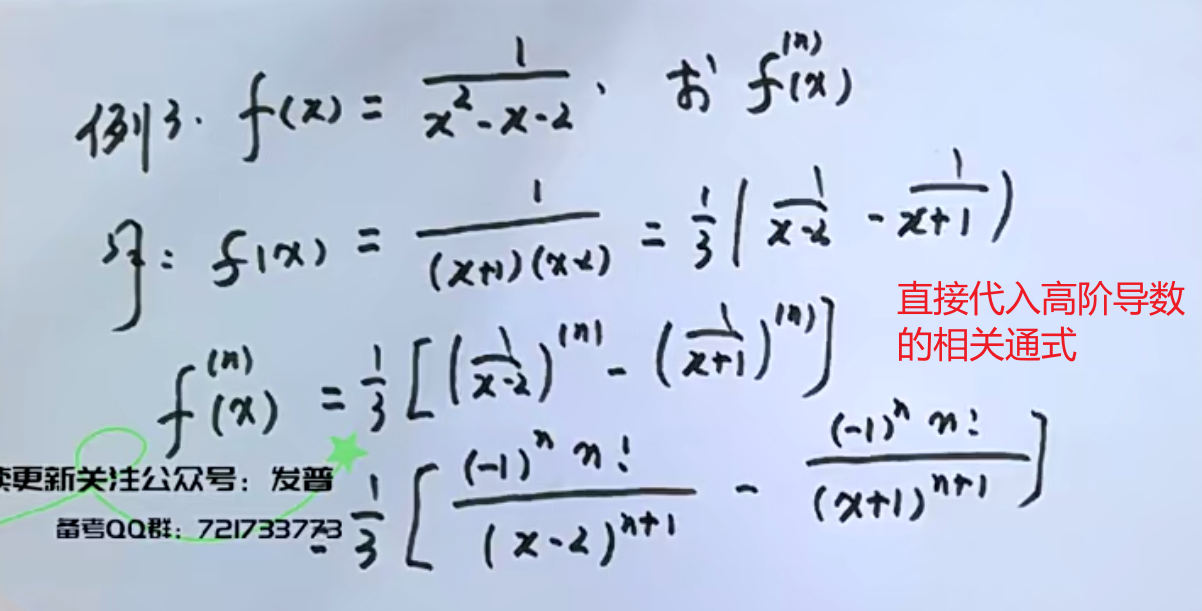 例3. f(x) = 1/(x²-x-2), 求 f⁽ⁿ⁾(x)
解: f(x) = 1/((x+1)(x-2)) = 1/3 ( 1/(x-2) - 1/(x+1) )
直接代入高阶导数
的相关通式
f⁽ⁿ⁾(x) = 1/3 [ (1/(x-2))⁽ⁿ⁾ - (1/(x+1))⁽ⁿ⁾ ]
= 1/3 [ (-1)ⁿ n! / (x-2)ⁿ⁺¹ - (-1)ⁿ n! / (x+1)ⁿ⁺¹ ]
更新关注公众号：发普
备考QQ群：721733773